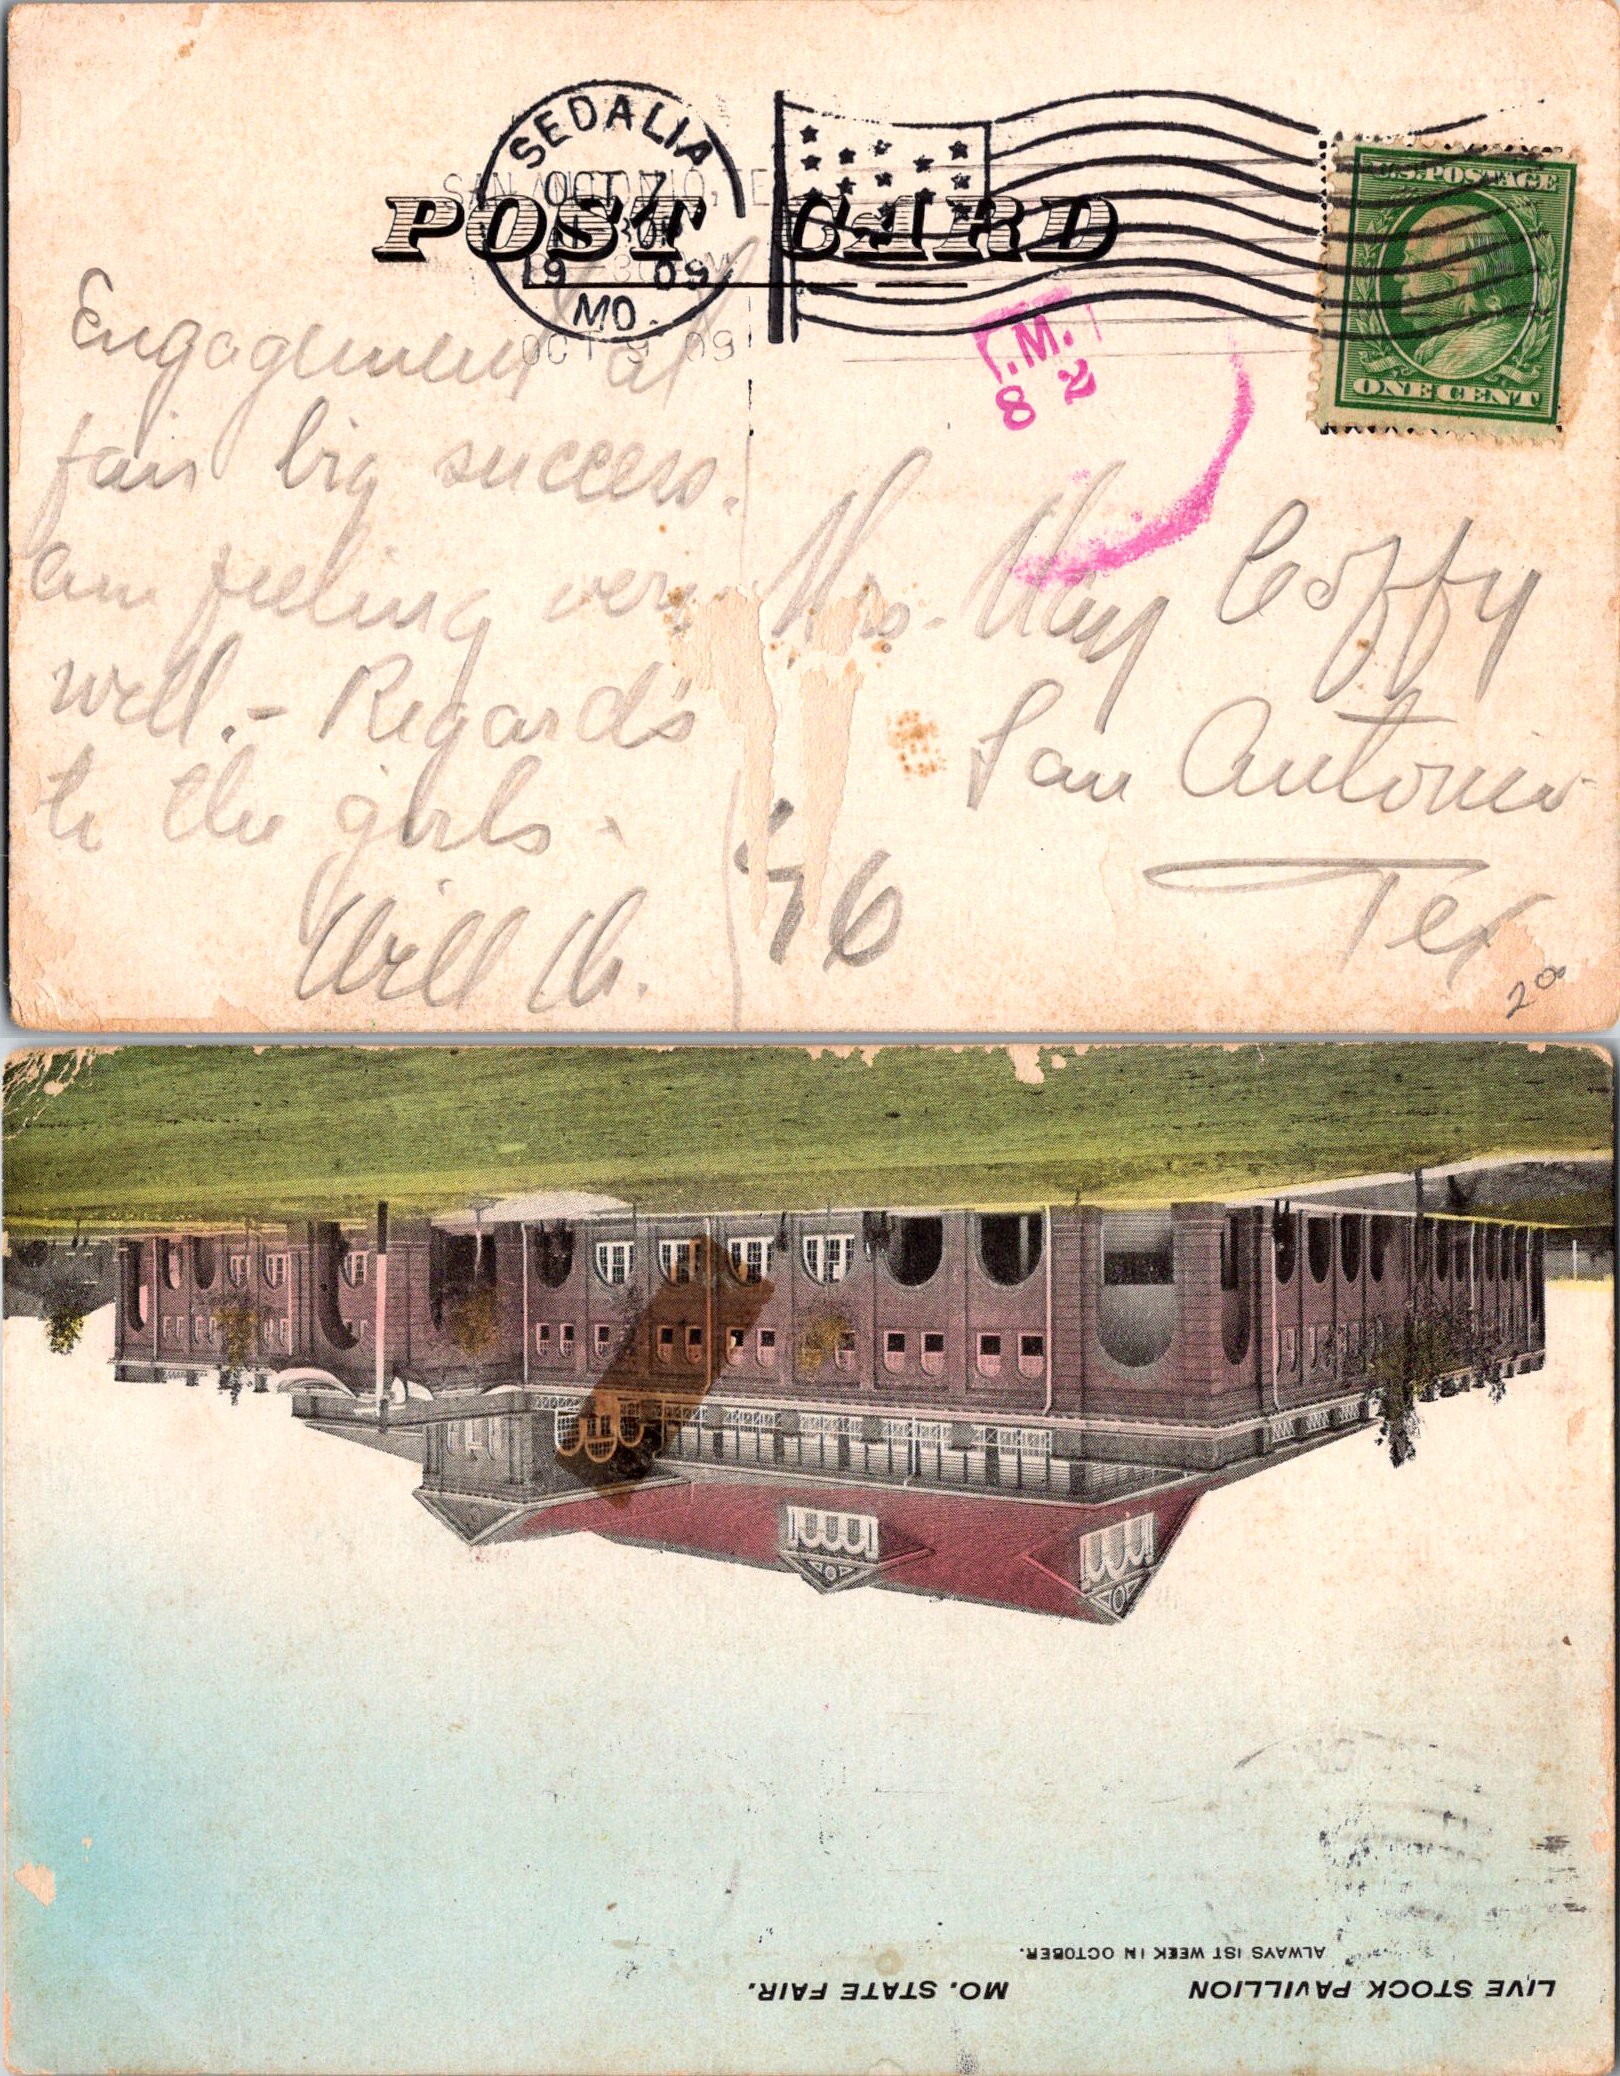 SEDALIA
OCT 7
19 09
MO.
SAN ANTONIO, TE
OCT 9 09
POST CARD
U.S. POSTAGE
ONE CENT
.M.
8 2
Engagement at
fair big success.
Am feeling very
well. - Regards
to the girls.
Will
Mrs. May Coffy
San Antonio
Tex
20
LIVE STOCK PAVILLION MO. STATE FAIR.
ALWAYS 1ST WEEK IN OCTOBER.